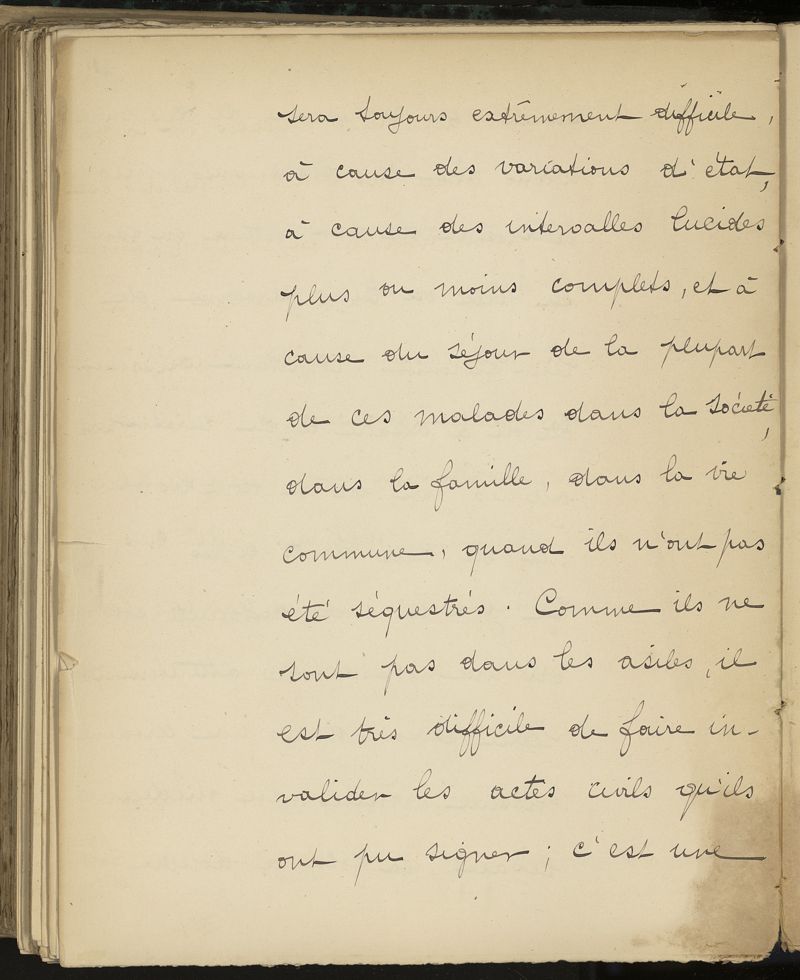 sera toujours extrêmement difficile,
à cause des variations d'état,
à cause des intervalles lucides
plus ou moins complets, et à
cause du séjour de la plupart
de ces malades dans la société,
dans la famille, dans la vie
commune, quand ils n'ont pas
été séquestrés. Comme ils ne
sont pas dans les asiles, il
est très difficile de faire in-
valider les actes civils qu'ils
ont pu signer; c'est une